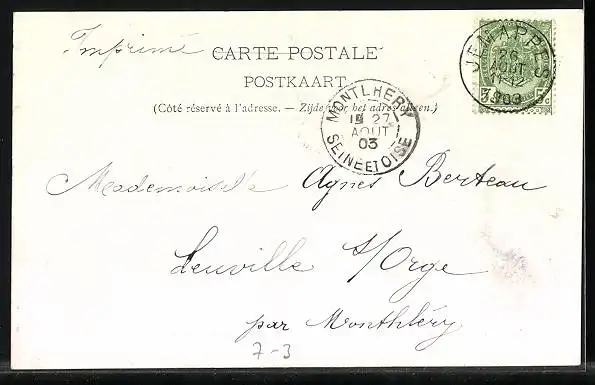 Imprimé
CARTE POSTALE
POSTKAART
(Côté réservé à l'adresse. — Zijde voor het adres alleen.)
JEMAPPES
26
AOUT
1903
5 c 5
MONTLHERY
1E 27
AOUT
03
SEINE ET OISE
Mademoiselle Agnes Berteau
Leuville s/Orge
par Monthléry
7-3